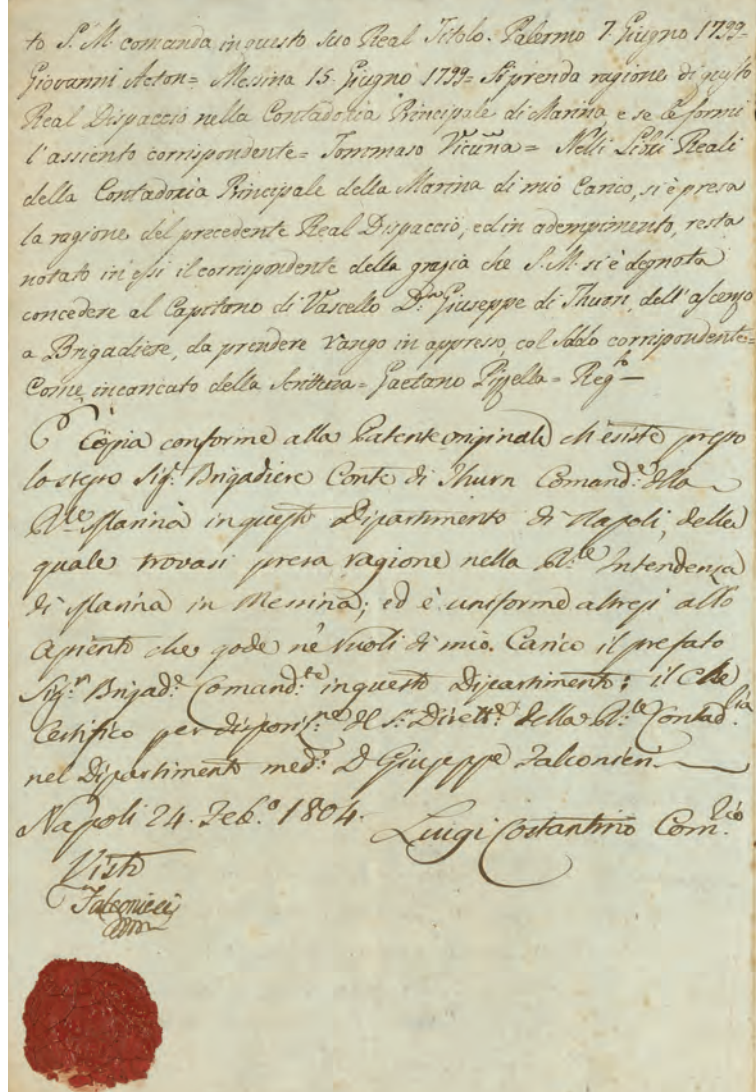 to S. M. comanda in questo suo Real Titolo. Palermo 7. Giugno 1799=
Giovanni Acton= Messina 15. Giugno 1799= Si prenda ragione di questo
Real Dispaccio nella Contadoria Principale di Marina, e se le formi
l'assiento corrispondente= Tommaso Vicuña= Nelli Libri Reali
della Contadoria Principale della Marina di mio Carico, si è presa
la ragione del precedente Real Dispaccio, ed in adempimento, resta
notato in essi il corrispondente della grazia che S. M. si è degnata
concedere al Capitano di Vascello D.n Giuseppe di Thurn, dell'ascenso
a Brigadiere, da prendere rango in appresso, col soldo corrispondente=
Come incaricato della Scrittura= Gaetano = Reg.to
Copia conforme alla Patente originale ch'esiste presso
lo stesso Sig.r Brigadiere Conte di Thurn Comand.e della
R.le Marina in questo Dipartimento di Napoli, della
quale trovasi presa ragione nella R.le Intendenza
di Marina in Messina; ed è uniforme altresì allo
Assiento che gode ne' Ruoli di mio Carico il prefato
Sig.r Brigad.e Comand.te in questo Dipartimento; il che
Certifico per disposiz.ne del S.r Dirett.e della R.le Contad.ria
nel Dipartimento med.o D Giuseppe Falconieri.
Napoli 24. Feb.o 1804.
Luigi Costantino Com.rio
Visto
Falconieri